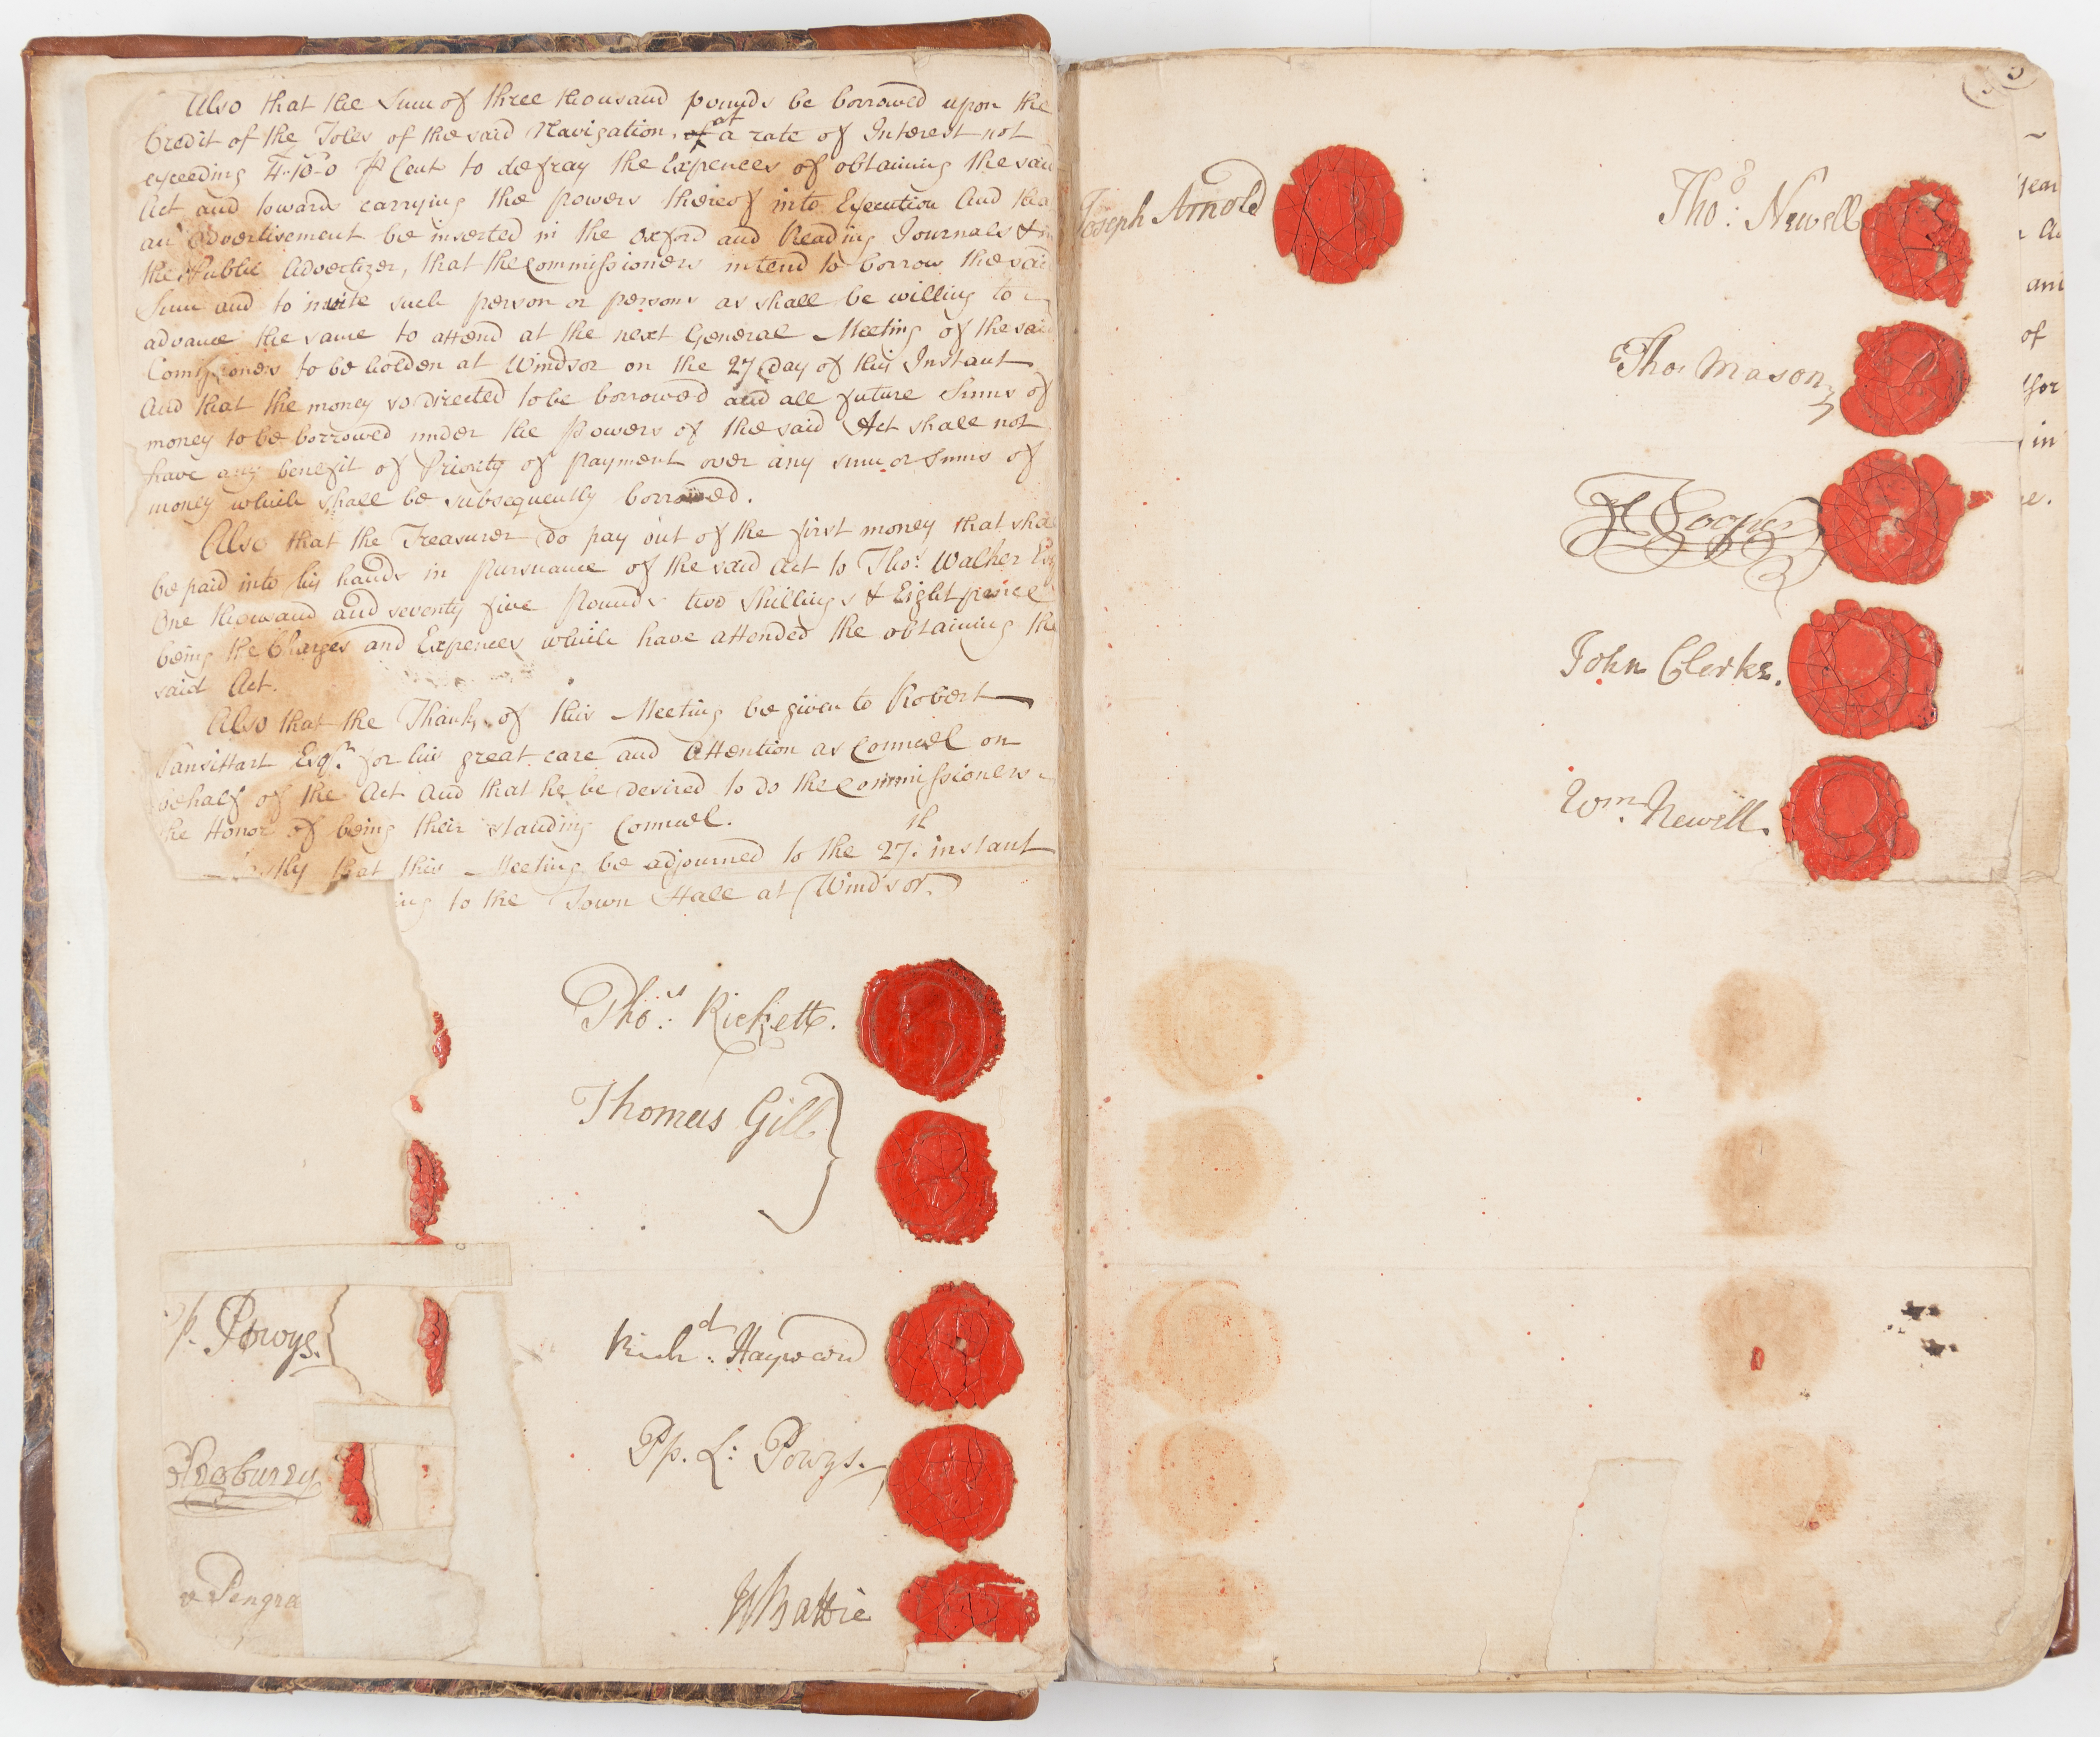 Also that the Sum of three thousand pounds be borrowed upon the
Credit of the Toles of the said Navigation, at a rate of Interest not
exceeding 4..10..0 P Cent to defray the Expences of obtaining the said
Act and towards carrying the powers thereof into Execution And tha
an advertisement be inserted in the Oxford and Reading Journals &
the Public Advertizer, that the Commissioners intend to borrow the said
Sum and to invite such person or persons as shall be willing to
advance the same to attend at the next General Meeting of the said
Comissioners to be holden at Windsor on the 27 day of this Instant
And that the money so directed to be borrowed and all future Sums of
money to be borrowed under the Powers of the said Act shall not
have any benefit of Priority of payment over any sum or Sums of
money which shall be subsequently borrowed.
Also that the Treasurer do pay out of the first money that shal
be paid into his hands in Pursuance of the said Act to Thos. Walker Esq
One thousand and seventy five Pounds two Shillings & Eight pence
being the Charges and Expences which have attended the obtaining the
said Act.
Also that the Thanks of this Meeting be given to Robert
Vansittart Esqr. for his great care and Attention as Councel on
behalf of the Act And that he be desired to do the Commissioners
the Honor of being their standing Councel.
stly that this Meeting be adjourned to the 27th. instant
ing to the Town Hall at Windsor.
Thos. Rickett.
Thomas Gill
p. Powys.
Richd. Hayward
Pp. L: Powys.
Pengra
W Battie
Joseph Arnold
Tho: Newell
Tho. Mason
Cooper
John Clerke.
Wm. Newell.
year
and
of
for
in